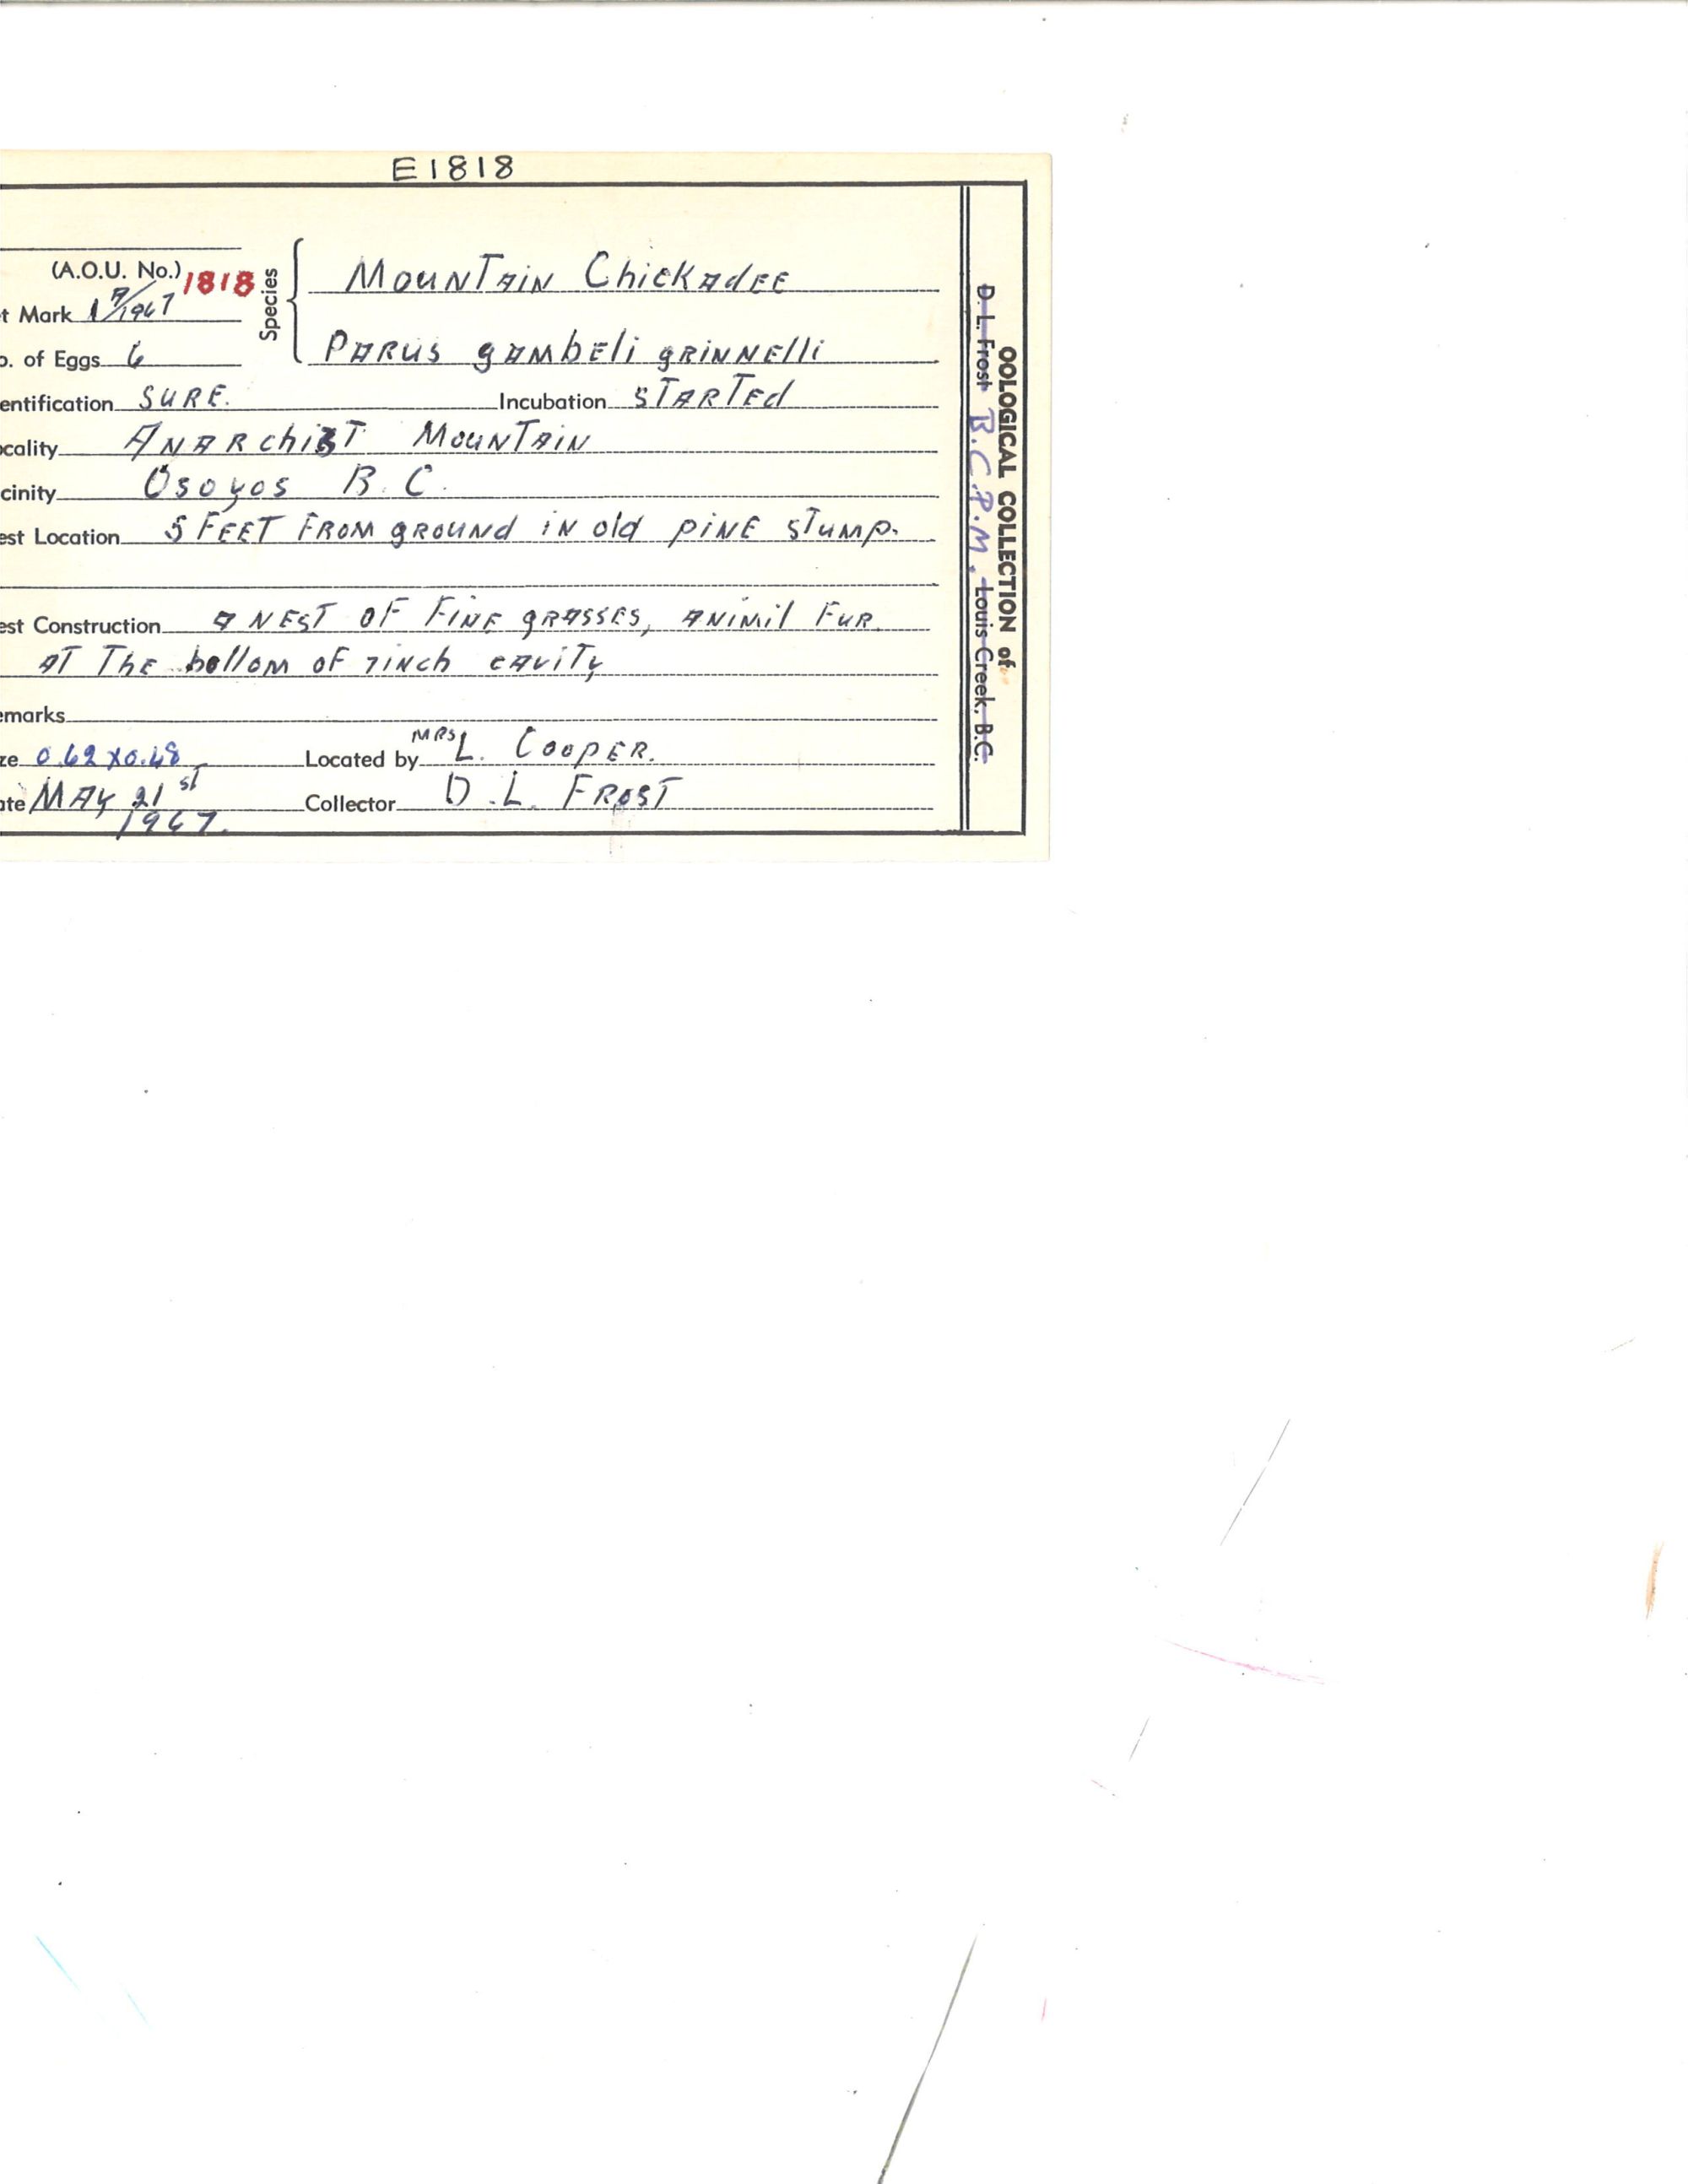 E1818
(A.O.U. No.) 1818
t Mark 1 A/1967
o. of Eggs 6
Species
Mountain Chickadee
Parus gambeli grinnelli
entification SURE. Incubation STARTEd
ocality ANARchisT MounTAiN
cinity Osoyos B.C.
est Location 5 FEET FROM gROUNd iN old piNE STump.
est Construction A NEST OF FiNE gRASSES, ANiMil FUR
AT ThE bottom OF 7 iNch cAviTy
emarks
ze 0.62 x 0.48 Located by MRS L. COOPER.
ate MAY 21st 1967. Collector D.L. FROST
OOLOGICAL COLLECTION of
D. L. Frost B.C.P.M. Louis Creek, B.C.